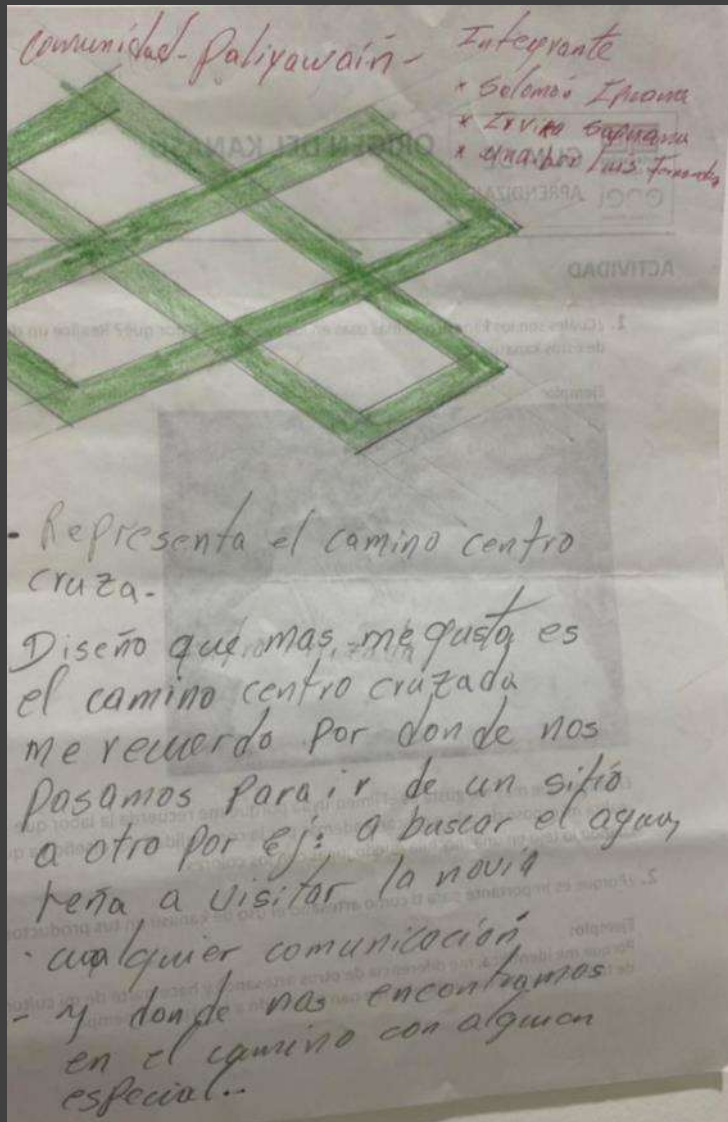 Comunidad - Paliyawain -
Integrante
* Solomon Ipuana
* Ana Luis Fernandez
- Representa el camino centro
cruza.
Diseño que mas me gusta es
el camino centro cruzada
me recuerdo por donde nos
pasamos para ir de un sitio
a otro por ej: a buscar el agua,
leña a visitar la novia
- cualquier comunicación
- y donde nos encontramos
en el camino con alguien
especial..